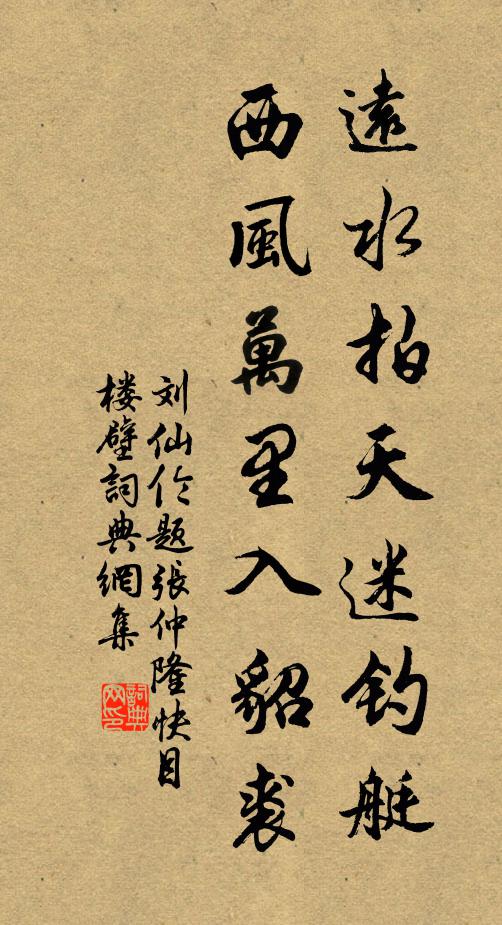 遠水拍天迷釣艇
西風萬里入貂裘
刘仙伦题張仲隆快目
楼壁詞典網集
詞典网印